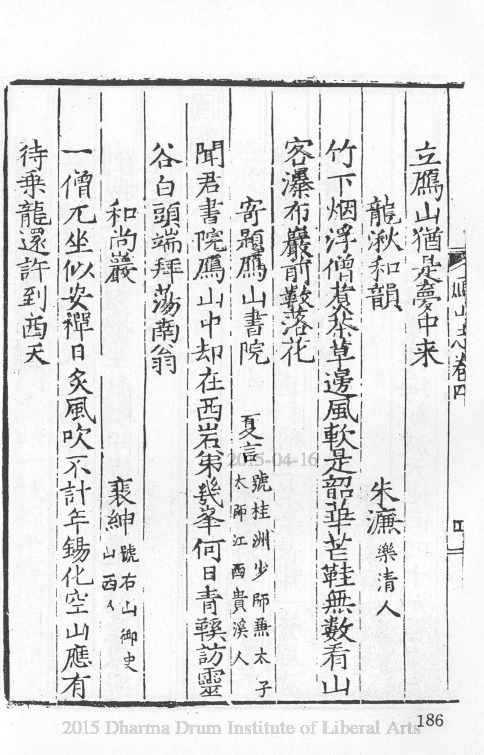 立鴈山猶是夢中来
龍湫和韻　朱濂樂清人
竹下烟浮僧煮茶草邊風軟是韶華芒鞋無數看山
客瀑布巖前數落花
寄題鴈山書院　夏言號桂洲少師兼太子
太師江西貴溪人
聞君書院鴈山中却在西岩第幾峯何日青鞵訪靈
谷白頭端拜蕩南翁
和尚巖　裴紳號右山御史
山西人
一僧兀坐似安禪日炙風吹不計年錫化空山應有
待乗龍還許到西天
鴈山志卷四
2015-04-16
186
2015 Dharma Drum Institute of Liberal Arts